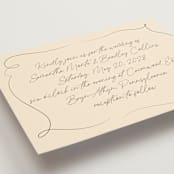 Kindly join us for the wedding of
Samantha Marte & Bradley Collins
Saturday, May 20, 2028
o'clock in the evening at
Pennsylvania
reception to follow